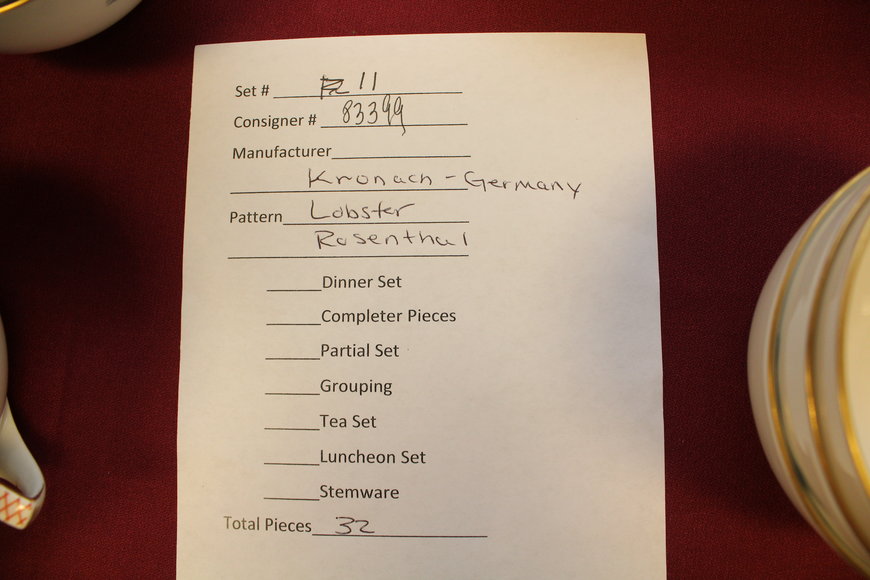 Set # 11
Consigner # 83399
Manufacturer
Kronach - Germany
Pattern Lobster
Rosenthal
Dinner Set
Completer Pieces
Partial Set
Grouping
Tea Set
Luncheon Set
Stemware
Total Pieces 32